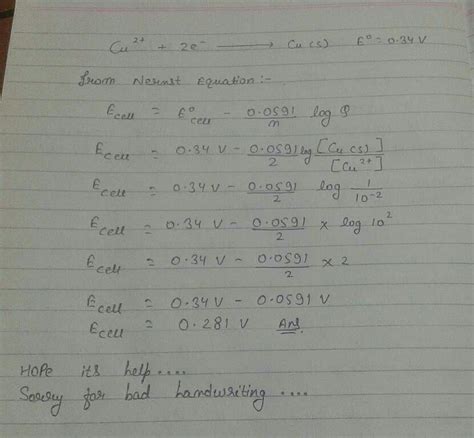 Cu²⁺ + 2e⁻ ⟶ Cu (s) E° = 0.34 V
From Nernst Equation :-
E_cell = E°_cell - 0.0591/n log Q
E_cell = 0.34 V - 0.0591/2 log [Cu (s)]/[Cu²⁺]
E_cell = 0.34 V - 0.0591/2 log 1/10⁻²
E_cell = 0.34 V - 0.0591/2 × log 10²
E_cell = 0.34 V - 0.0591/2 × 2
E_cell = 0.34 V - 0.0591 V
E_cell = 0.281 V Ans
HOPe its help ....
Sorry for bad handwriting ....